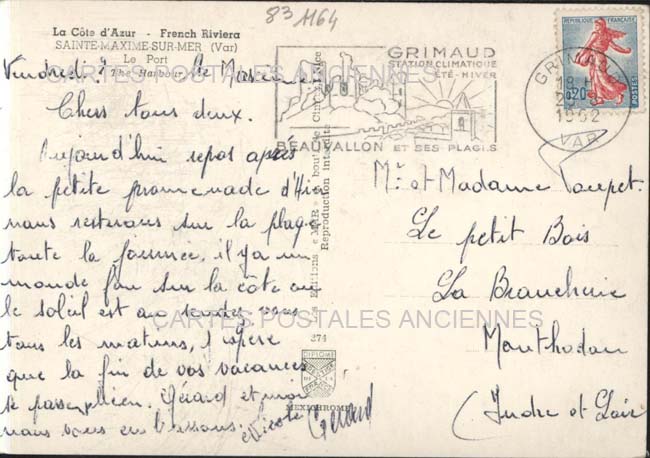 83 1164
La Côte d'Azur - French Riviera
SAINTE-MAXIME-SUR-MER (Var)
Le Port
The Harbour
Vendredi
Chers tous deux.
Aujourd'hui repos après
la petite promenade d'hier
nous resterons sur la plage
toute la journée. il y a un
monde fou sur la côte ou
le soleil est au rendez vous
tous les matins, J'espère
que la fin de vos vacances
se passe bien. Gérard et moi
nous vous embrassons.
Nicole Gérard
GRIMAUD
STATION CLIMATIQUE
ÉTÉ-HIVER
BEAUVALLON ET SES PLAGES
GRIMAUD
18 H
1962
VAR
REPUBLIQUE FRANÇAISE
0,20
POSTES
Les Editions « MAR »
Reproduction interdite
374
DIPLOME
MEXICHROME
Mr et Madame
Le petit Bois
La Brancherie
Monthodon
(Indre et Loire
CARTES POSTALES ANCIENNES
CARTES POSTALES ANCIENNES